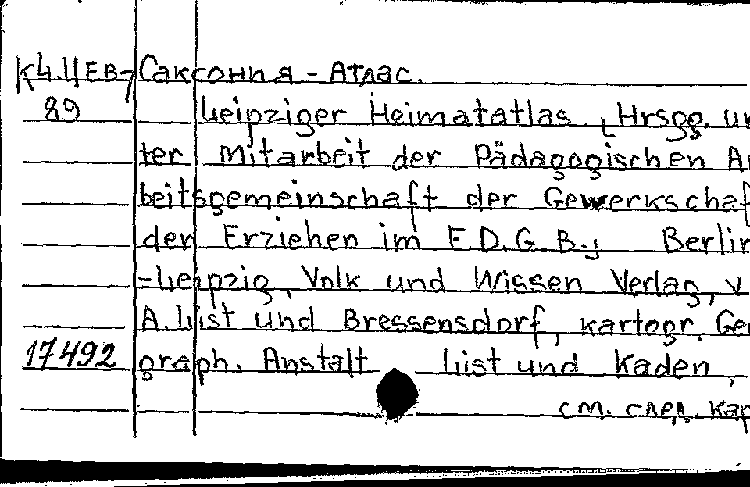 К4.ЦЕВ-7 Саксония - Атлас.
89 Leipziger Heimatatlas. [Hrsgg. un
ter Mitarbeit der Pädagogischen Ar
beitsgemeinschaft der Gewerkschaf
der Erziehen im F.D.G.B., Berlin
-Leipzig, Volk und Wissen Verlag, v.
A. List und Bressensdorf, kartogr. Geo
17492 graph. Anstalt List und Kaden,
см. след. кар